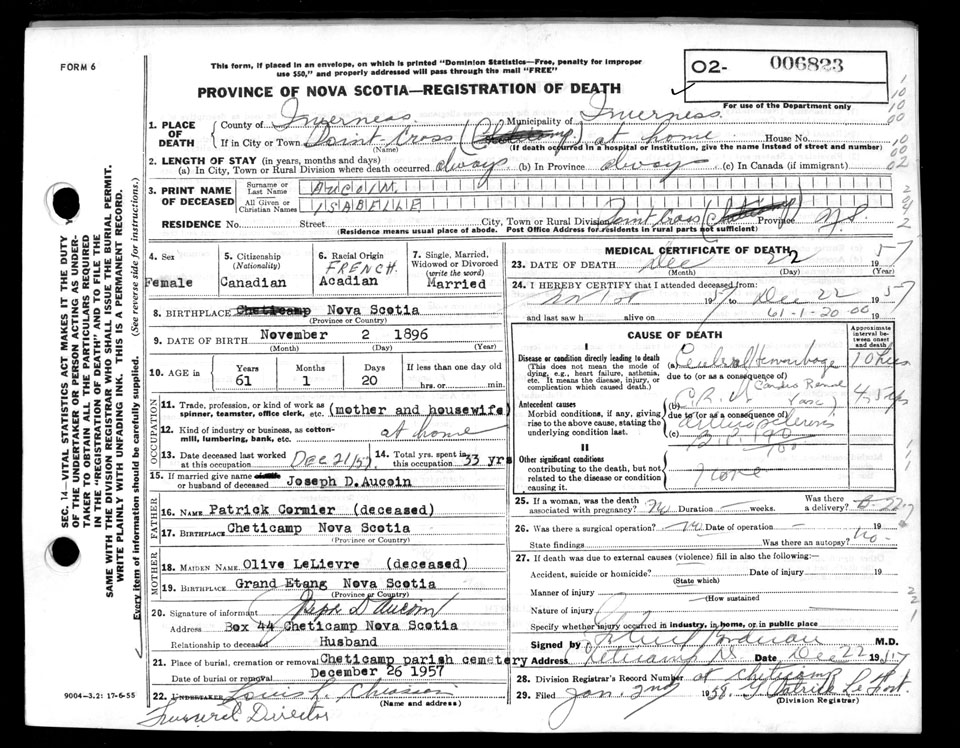 FORM 6
This form, if placed in an envelope, on which is printed "Dominion Statistics—Free, penalty for improper
use $50," and properly addressed will pass through the mail "FREE"
O2- 006823
For use of the Department only
PROVINCE OF NOVA SCOTIA—REGISTRATION OF DEATH
1. PLACE OF DEATH
County of Inverness Municipality of Inverness
If in City or Town Point Cross (Cheticamp) at home House No.
(Name) (If death occurred in a hospital or institution, give the name instead of street and number)
2. LENGTH OF STAY (in years, months and days)
(a) In City, Town or Rural Division where death occurred always (b) In Province always (c) In Canada (if immigrant)
3. PRINT NAME OF DECEASED
Surname or Last Name AUCOIN
All Given or Christian Names ISABELLE
RESIDENCE No. Street City, Town or Rural Division Point Cross (Cheticamp) Province N.S
(Residence means usual place of abode. Post Office Address for residents in rural parts not sufficient)
4. Sex Female
5. Citizenship (Nationality) Canadian
6. Racial Origin FRENCH. Acadian
7. Single, Married, Widowed or Divorced (write the word) Married
8. BIRTHPLACE Cheticamp Nova Scotia
(Province or Country)
9. DATE OF BIRTH November 2 1896
(Month) (Day) (Year)
10. AGE IN Years Months Days If less than one day old
61 1 20 hrs. or min.
OCCUPATION
11. Trade, profession, or kind of work as spinner, teamster, office clerk, etc. (mother and housewife)
12. Kind of industry or business, as cotton-mill, lumbering, bank, etc. at home
13. Date deceased last worked at this occupation DEC 21/57
14. Total yrs. spent in this occupation 33 yrs
15. If married give name or husband of deceased Joseph D.Aucoin
FATHER
16. NAME Patrick Cormier (deceased)
17. BIRTHPLACE Cheticamp Nova Scotia
(Province or Country)
MOTHER
18. MAIDEN NAME Olive LeLievre (deceased)
19. BIRTHPLACE Grand Etang Nova Scotia
(Province or Country)
20. Signature of informant D Aucoin
Address Box 44 Cheticamp Nova Scotia
Relationship to deceased Husband
21. Place of burial, cremation or removal Cheticamp parish cemetery
Date of burial or removal December 26 1957
22. UNDERTAKER Louis L. Chiasson
(Name and address)
Funeral Director
MEDICAL CERTIFICATE OF DEATH
23. DATE OF DEATH Dec 22 1957
(Month) (Day) (Year)
24. I HEREBY CERTIFY that I attended deceased from
Nov 1st 1957 to Dec 22 1957
and last saw h alive on 61-1-20-00 19
CAUSE OF DEATH
Approximate interval between onset and death
I
Disease or condition directly leading to death
(This does not mean the mode of dying, e.g., heart failure, asthenia, etc. It means the disease, injury, or complication which caused death.)
(a) Cerebral Hemorrhage
due to (or as a consequence of)
Antecedent causes
Morbid conditions, if any, giving rise to the above cause, stating the underlying condition last.
(b) Cardio Renal
due to (or as a consequence of)
(c)
II
Other significant conditions
contributing to the death, but not related to the disease or condition causing it.
None
25. If a woman, was the death associated with pregnancy? No Duration — weeks. Was there a delivery?
26. Was there a surgical operation? No Date of operation — 19
State findings Was there an autopsy? No-
27. If death was due to external causes (violence) fill in also the following:—
Accident, suicide or homicide? Date of injury 19
(State which)
Manner of injury
(How sustained
Nature of injury
Specify whether injury occurred in industry, in home, or in public place
Signed by M.D.
Address Cheticamp Date Dec 22 1957
28. Division Registrar's Record Number at Cheticamp
29. Filed Jan. 2nd 1958. Patrick LeFort.
(Division Registrar)
SEC. 14—VITAL STATISTICS ACT MAKES IT THE DUTY
OF THE UNDERTAKER OR PERSON ACTING AS UNDER-
TAKER TO OBTAIN ALL THE PARTICULARS REQUIRED
IN THE "REGISTRATION OF DEATH" AND TO FILE THE
SAME WITH THE DIVISION REGISTRAR WHO SHALL ISSUE THE BURIAL PERMIT.
WRITE PLAINLY WITH UNFADING INK. THIS IS A PERMANENT RECORD.
Every item of information should be carefully supplied. (See reverse side for instructions.)
9004—3.2: 17-6-55